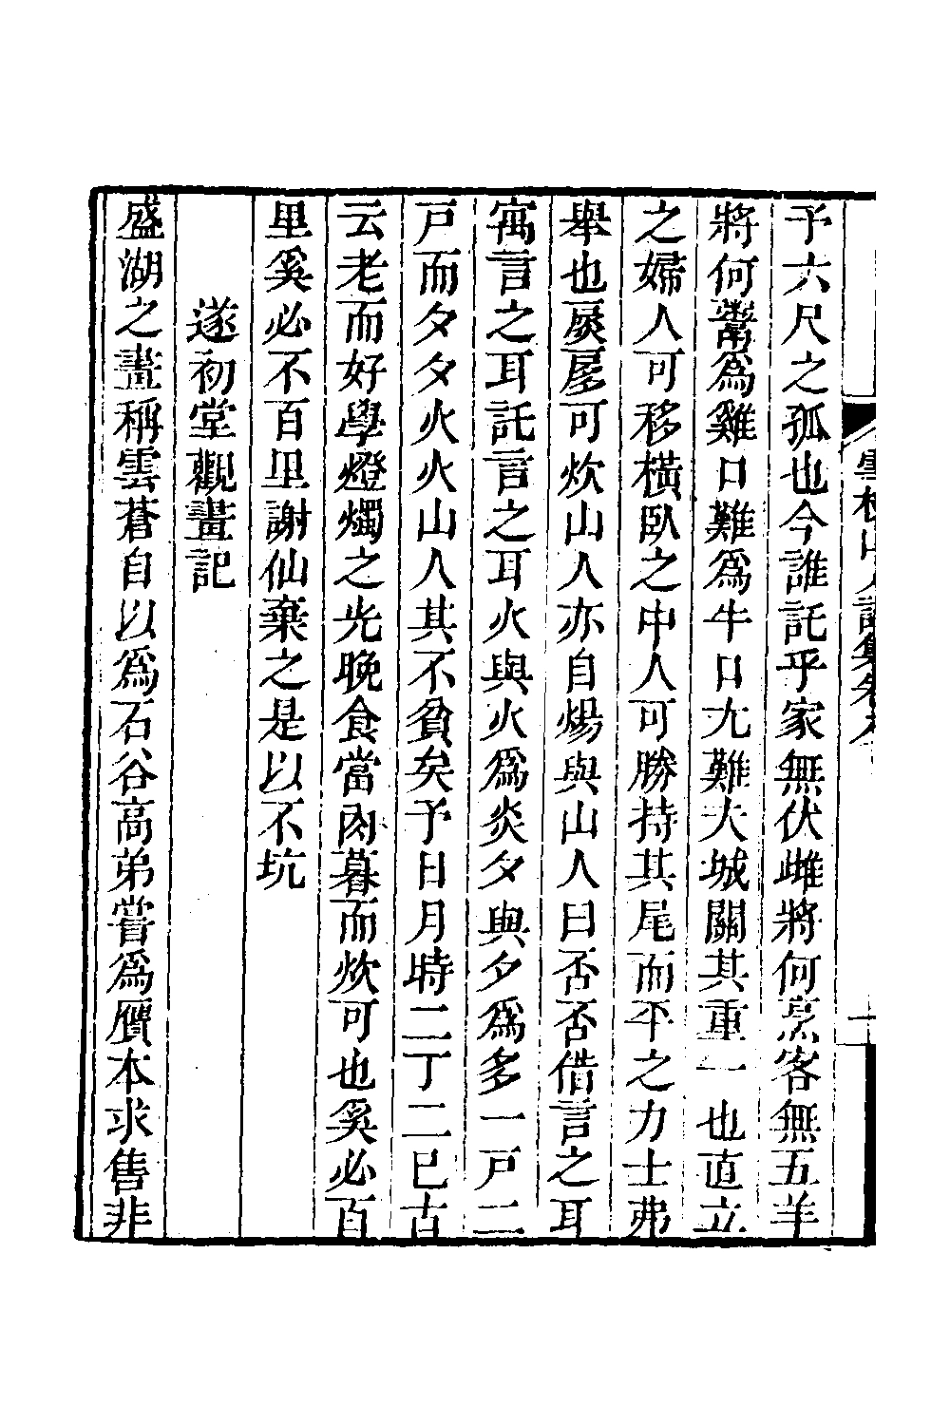 予六尺之孤也今誰託乎家無伏雌將何烹客無五羊
將何鬻為雞口難為牛口尢難大城關其重一也直立
之婦人可移橫臥之中人可勝持其尾而平之力士弗
舉也扊扅可炊山人亦自煬與山人曰否否借言之耳
寓言之耳託言之耳火與火為炎夕與夕為多一戸二
戸而夕夕火火山人其不貧矣予日月時二丁二巳古
云老而好學燈燭之光晚食當肉暮而炊可也奚必百
里奚必不百里謝仙棄之是以不坑
遂初堂觀畫記
盛湖之畫稱雲蒼自以為石谷高弟嘗為贗本求售非
山人詩集卷
十